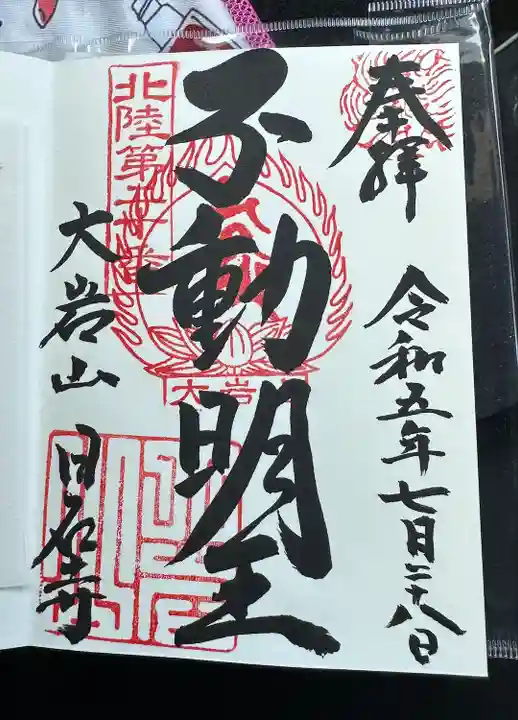 奉拝
令和五年七月二十八日
不動明王
北陸第
大岩
大岩山 日石寺